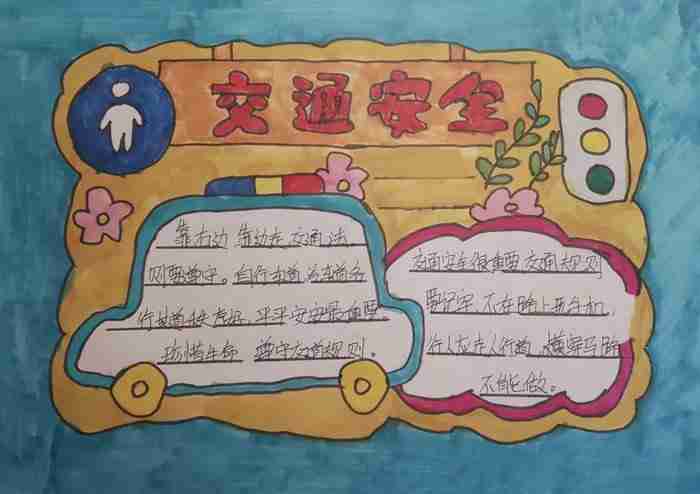 交通安全
靠右边 靠边走 交通法
则要遵守。自行车道
行
平平安安最重要
珍惜生命 遵守交通规则。
交通安全很重要 交通规则
要记牢 不在路上玩手机
行人应走人行道 横穿马路
不能做。